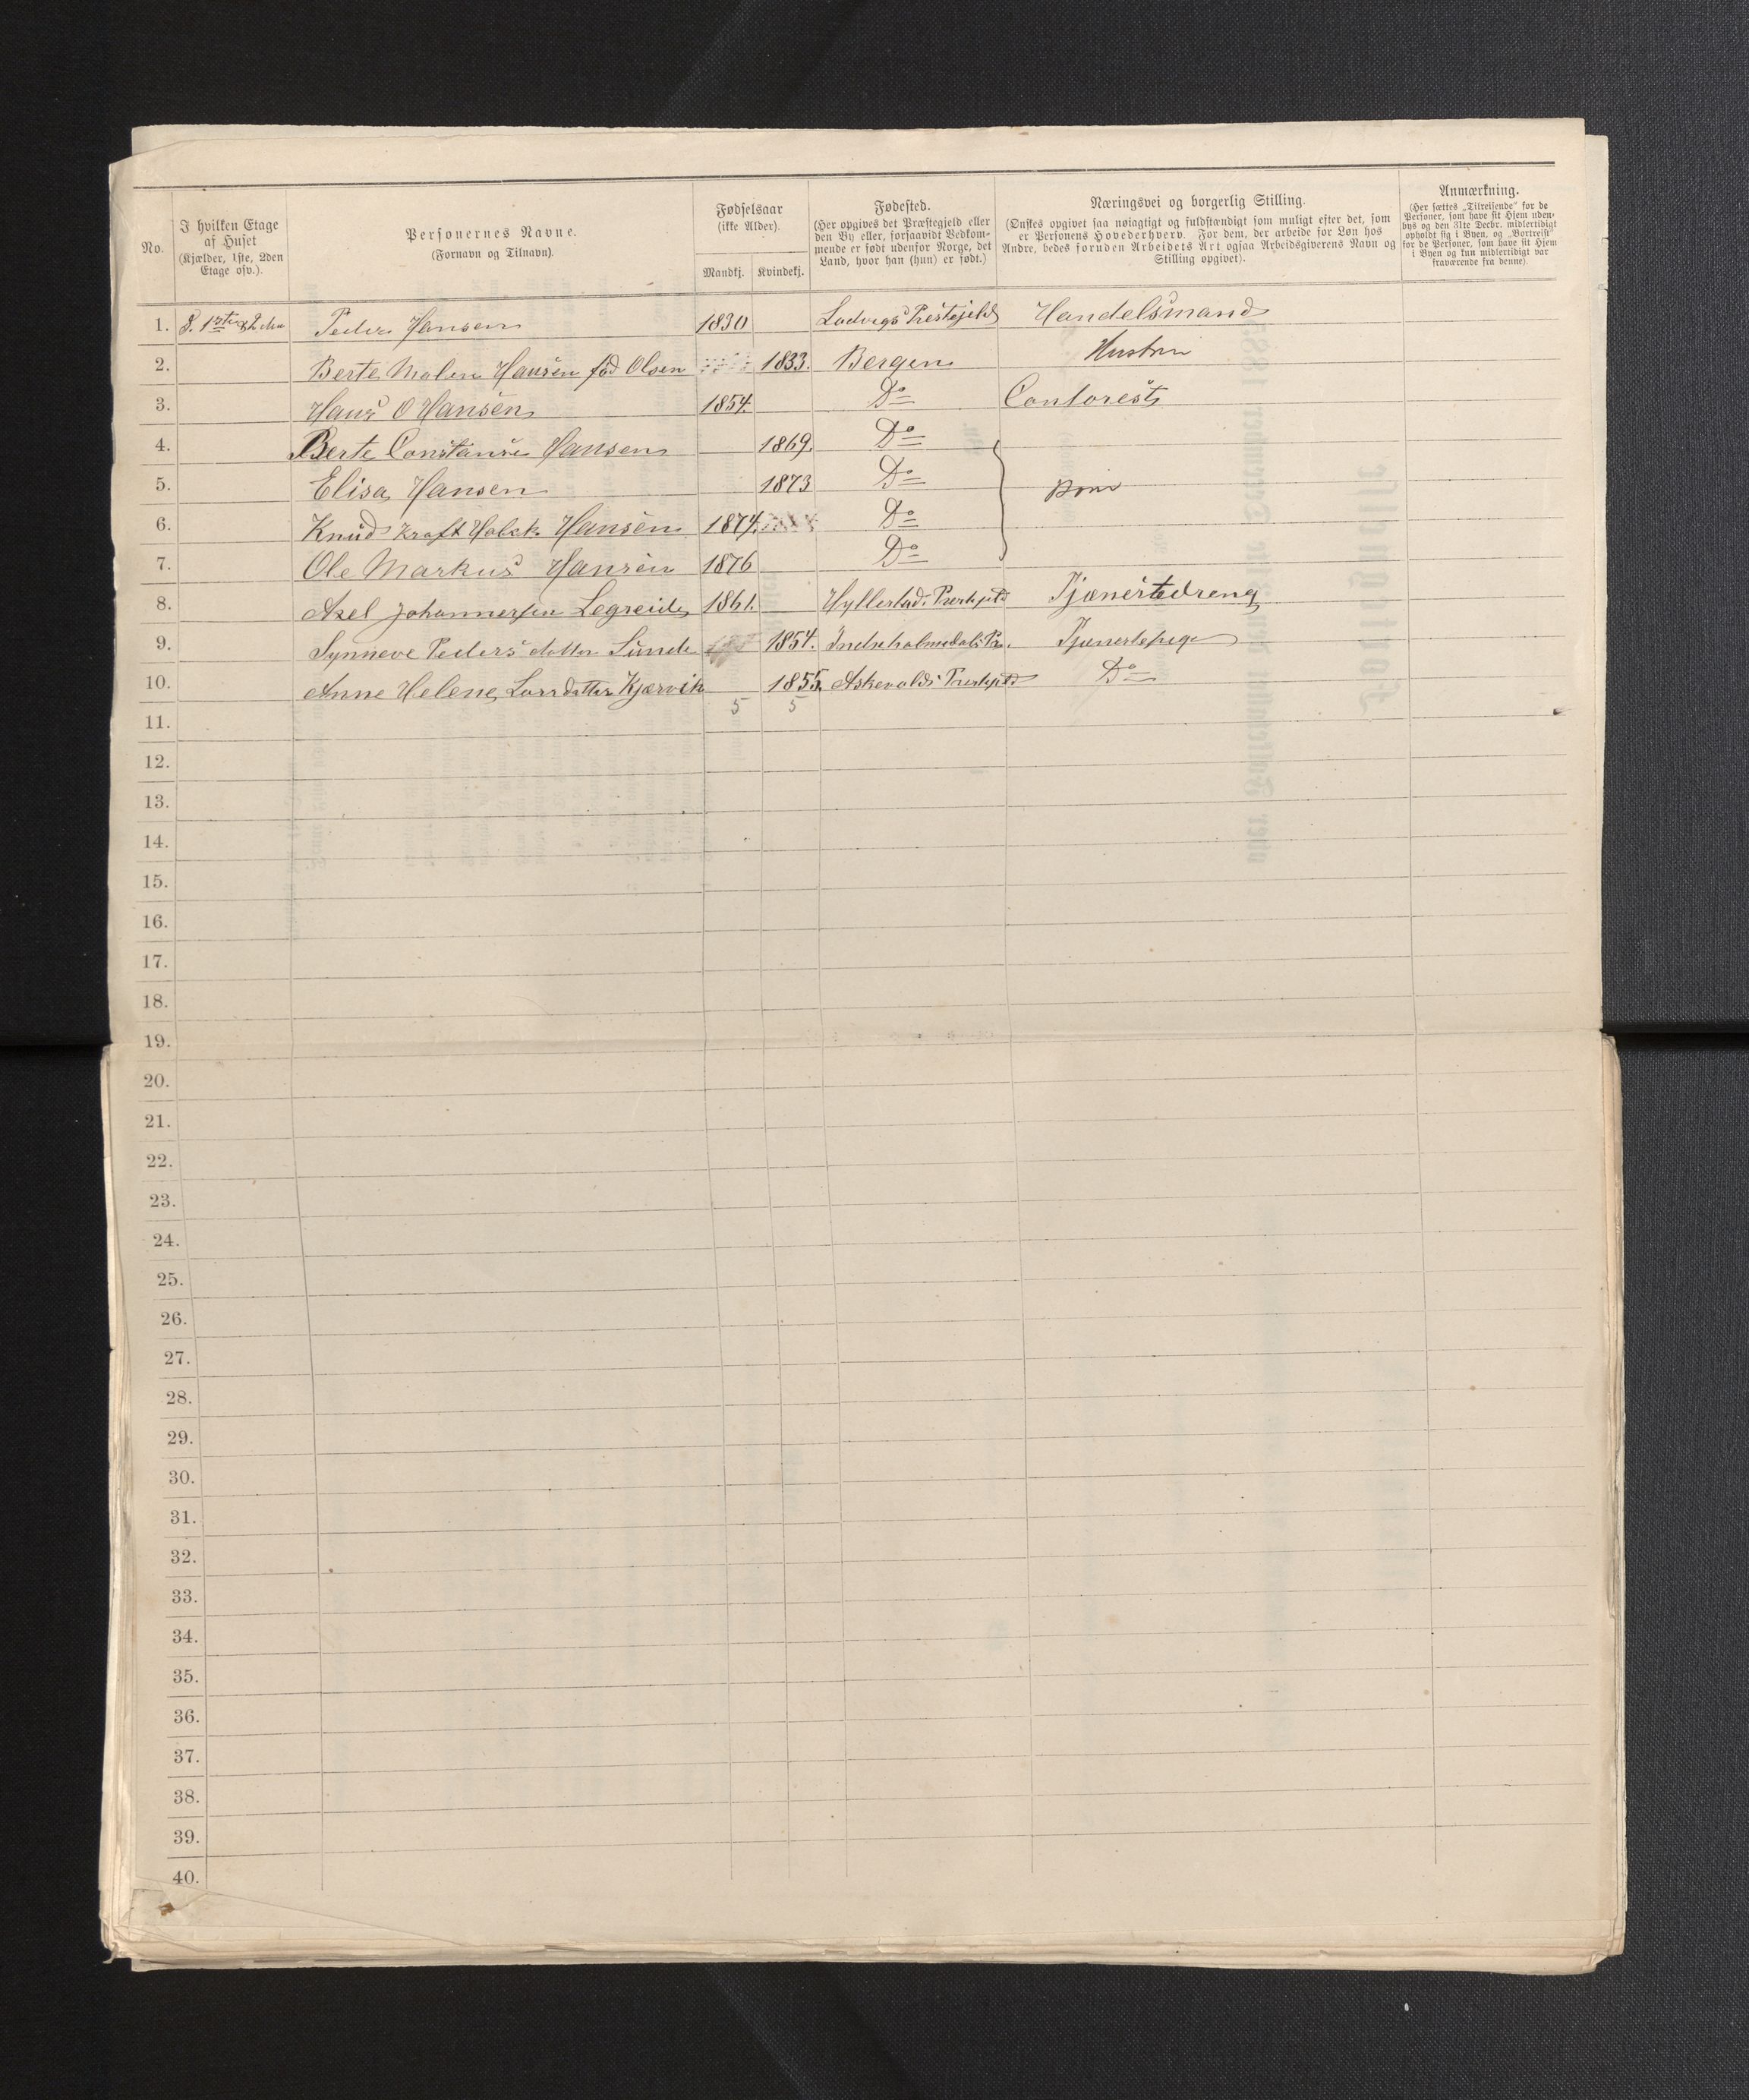 No.
I hvilken Etage
af Huset
(Kjælder, 1ste, 2den
Etage osv.).
Personernes Navne.
(Fornavn og Tilnavn).
Fødselsaar
(ikke Alder).
Mandkj. Kvindekj.
Fødested.
(Her opgives det Præstegjeld eller
den By eller, forsaavidt Vedkom-
mende er født udenfor Norge, det
Land, hvor han (hun) er født.)
Næringsvei og borgerlig Stilling.
(Ønskes opgivet saa nøiagtigt og fuldstændigt som muligt efter det, som
er Personens Hovederhverv. For dem, der arbeide for Løn hos
Andre, bedes foruden Arbeidets Art ogsaa Arbeidsgiverens Navn og
Stilling opgivet).
Anmærkning.
(Her sættes „Tilreisende" for de
Personer, som have sit Hjem uden-
bys og den 31te Decbr. midlertidigt
opholdt sig i Byen, og „Bortreist"
for de Personer, som have sit Hjem
i Byen og kun midlertidigt var
fraværende fra denne).
1. Peder Hansen 1830 Ladvigs Prestejeld Handelsmand
2. Berte Malene Hansen fød Olsen 1833. Bergen Hustru
3. Hans O Hansen 1854. Do Contorist
4. Berte Constanse Hansen 1869. Do
5. Elisa Hansen 1873 Do Børn
6. Knud Kraft Holck Hansen 1874. Do
7. Ole Markus Hansen 1876 Do
8. Axel Johannessen Legreide 1861. Hyllestad Prestejeld Tjenestedreng
9. Synneve Pedersdotter Sunde 1854. Indreholmedals Pr. Tjenestepige
10. Anne Helene Larsdatter Kjærvik 1855. Askevolds Prestejeld Do
5 5
11.
12.
13.
14.
15.
16.
17.
18.
19.
20.
21.
22.
23.
24.
25.
26.
27.
28.
29.
30.
31.
32.
33.
34.
35.
36.
37.
38.
39.
40.